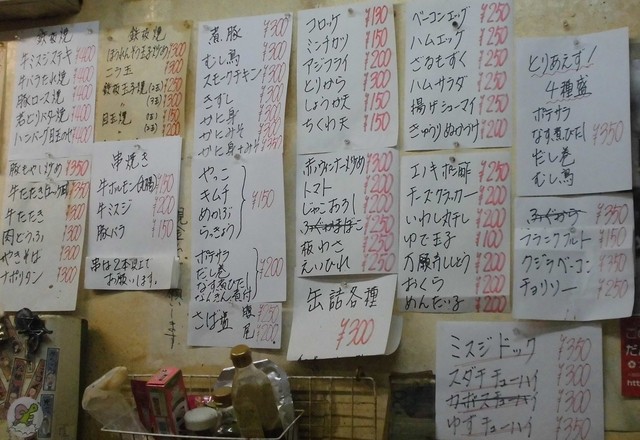 鉄板焼
牛ミスジステキ ¥400
牛バラたれ焼 ¥400
豚ロース焼 ¥400
若とりバター焼 ¥400
ハンバーグ目のせ ¥400
鉄板焼
ほうれんそう玉子炒め ¥300
ニラ玉 ¥300
鉄板玉子焼 (2ヶ) ¥250
〃 (3ヶ) ¥300
目玉焼 (1ヶ) ¥150
〃 (2ヶ) ¥200
煮豚 ¥300
むし鳥 ¥300
スモークチキン ¥300
きずし ¥300
カニ身 ¥300
カニみそ ¥300
カニ身みそ ¥350
コロッケ ¥130
ミンチカツ ¥150
アジフライ ¥200
とりから ¥300
しょうが天 ¥150
ちくわ天 ¥150
ベーコンエッグ ¥250
ハムエッグ ¥250
ざるもずく ¥250
ハムサラダ ¥250
揚げシューマイ ¥250
きゅうりぬか漬け ¥200
とりあえず!
4種盛
ポテサラ
なす煮びたし
だし巻
むし鳥
¥350
豚もやし炒め ¥350
牛たたき ¥300
肉どうふ ¥300
やきそば ¥300
ナポリタン ¥300
串焼き
牛ホルモン ¥150
牛ミスジ ¥200
豚バラ ¥150
串は2本以上で
お願いします。
やっこ
キムチ
めかぶ
らっきょう
¥150
ポテサラ
だし巻
なす煮びたし
¥200
さば盛 腹 ¥250
尾 ¥200
赤ウィンナー炒め ¥300
トマト ¥200
じゃこおろし ¥200
板わさ ¥250
えいひれ ¥250
缶詰各種
¥300
エノキポン酢 ¥250
チーズクラッカー ¥200
いわし丸干し ¥200
ゆで玉子 ¥100
万願寺しどう ¥200
おくら ¥200
めんたい子 ¥200
¥350
フランクフルト ¥150
クジラベーコン ¥350
チョリソー ¥250
ミスジドック ¥350
スダチチューハイ ¥300
カボスチューハイ ¥300
ゆずチューハイ ¥350